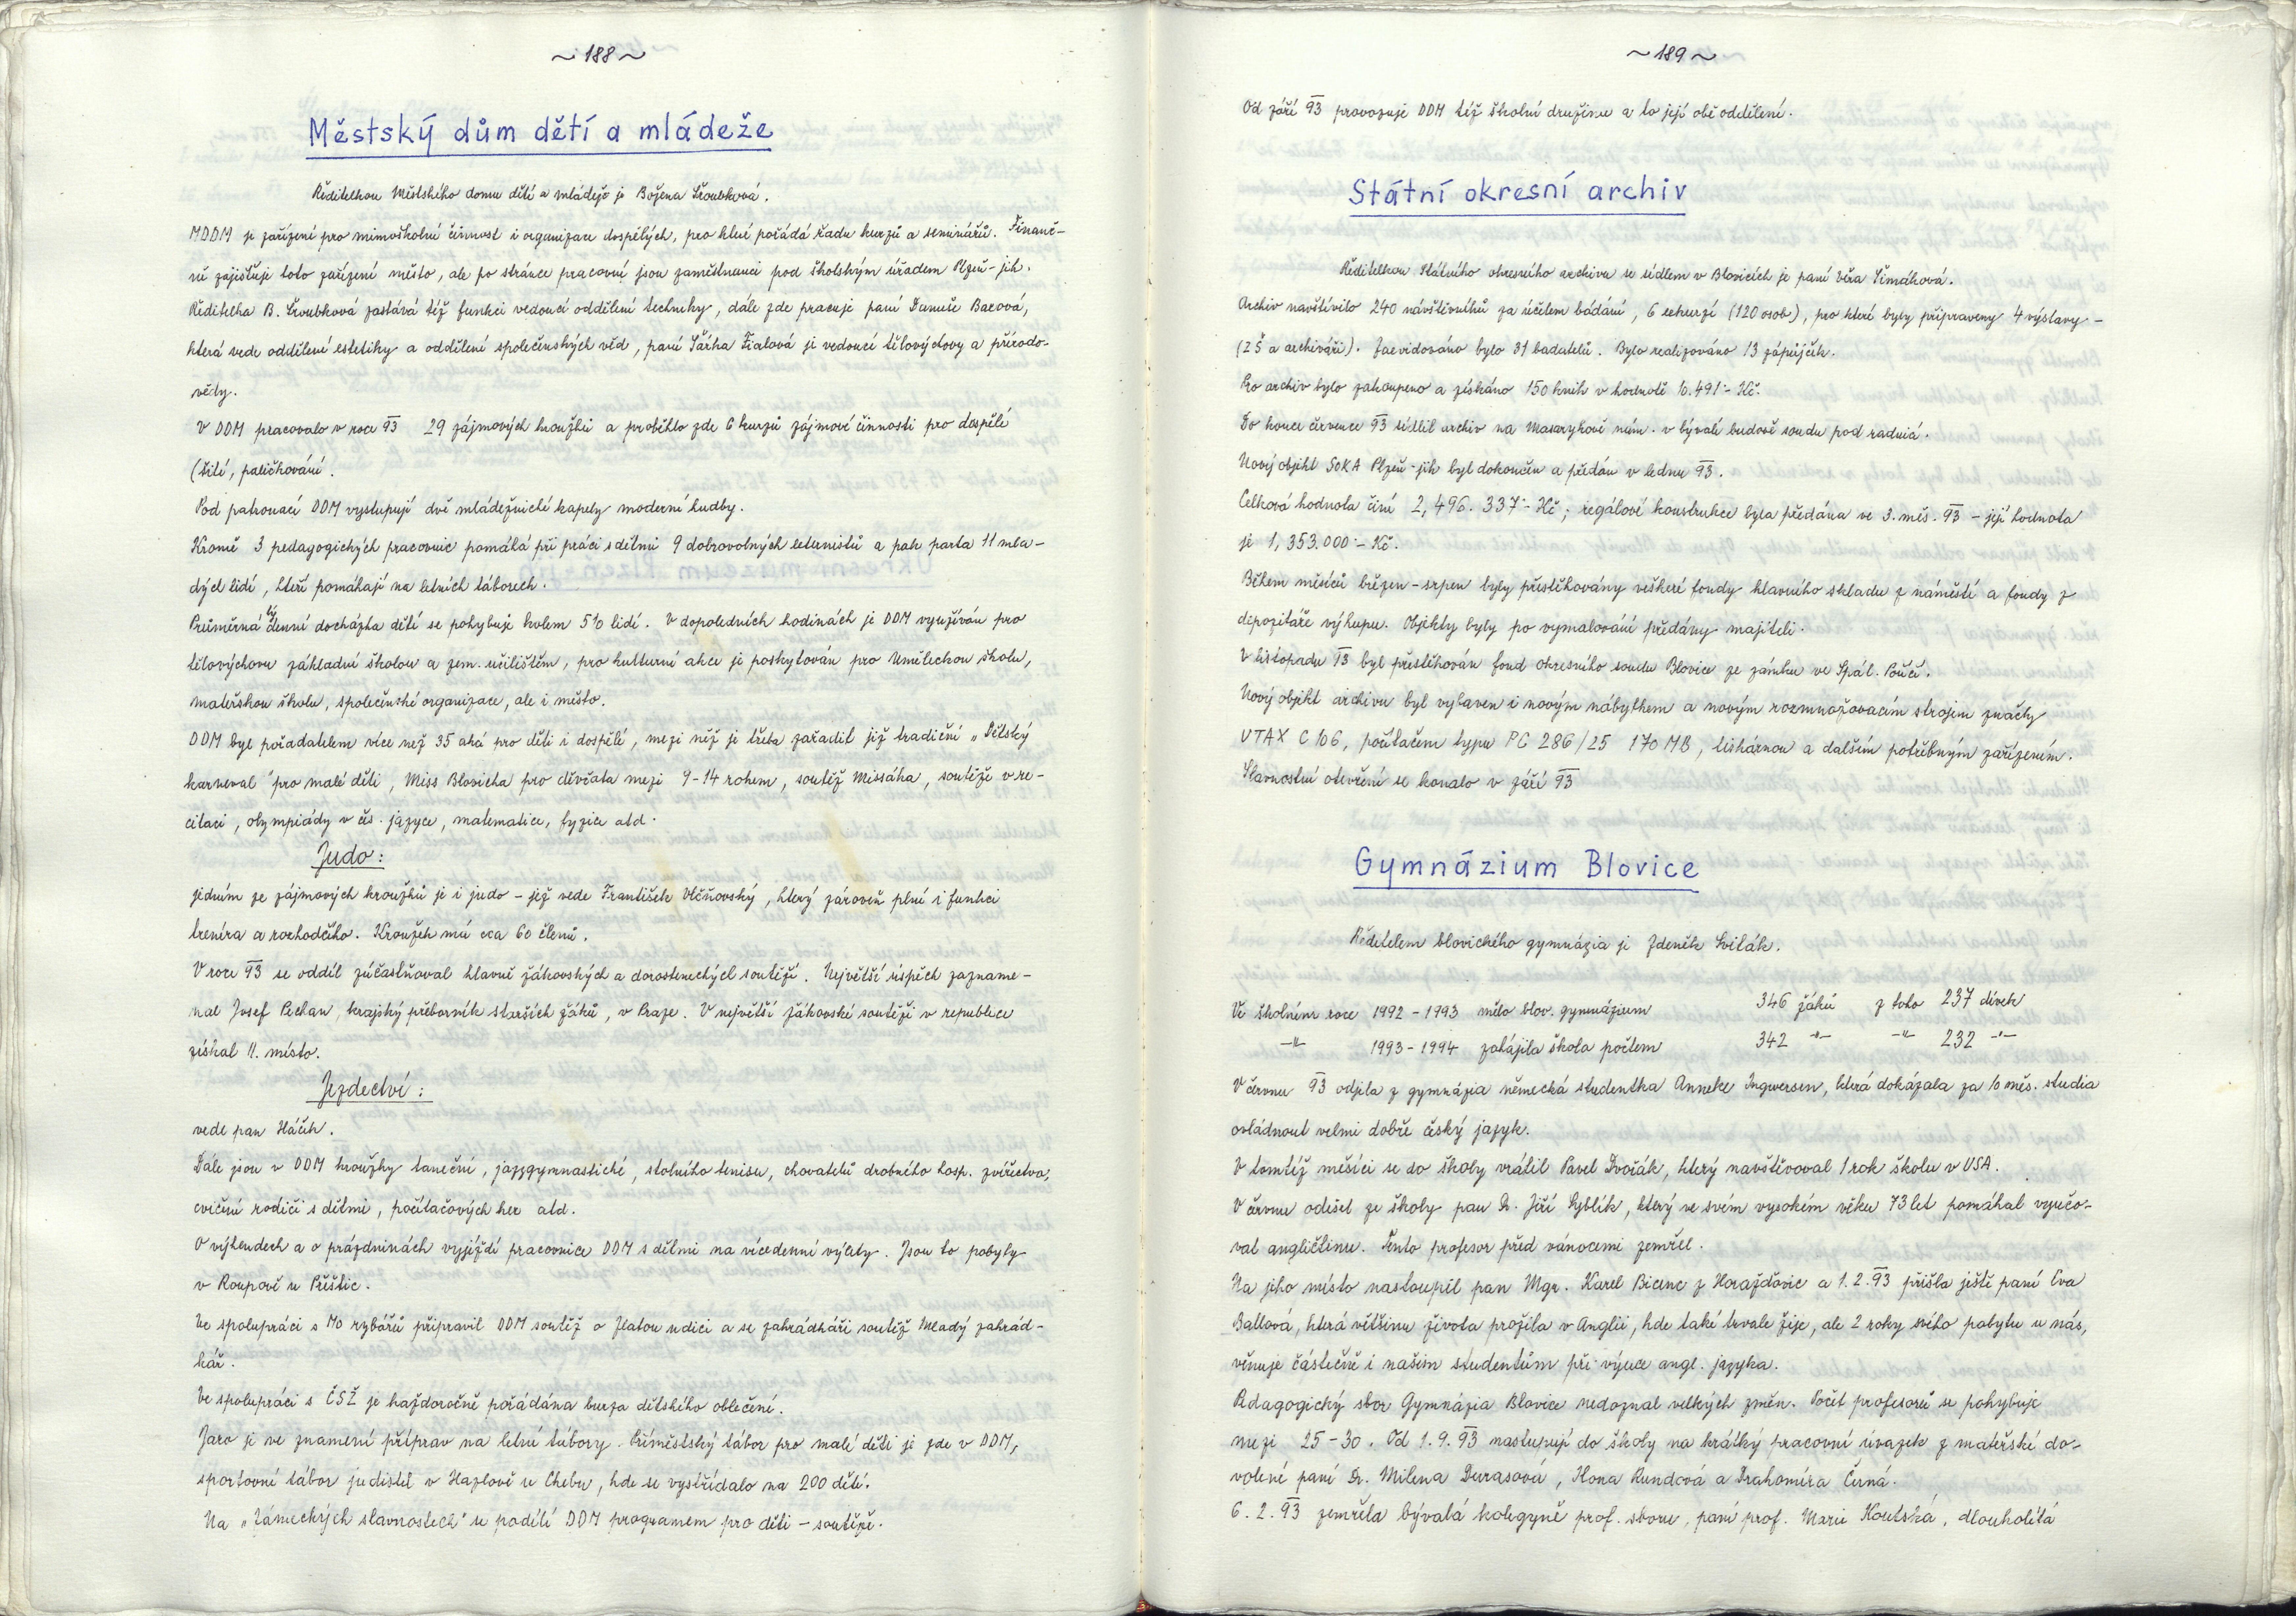 ~ 188 ~
Městský dům dětí a mládeže
Ředitelkou Městského domu dětí a mládeže je Božena Šroubková.
MDDM je zařízení pro mimoškolní činnost i organizace dospělých, pro které pořádá řadu kurzů a seminářů. Finanč-
ně zajišťuje toto zařízení město, ale po stránce pracovní jsou zaměstnanci pod školským úřadem Plzeň-jih.
Ředitelka B. Šroubková zastává též funkci vedoucí oddělení techniky, dále zde pracuje paní Danuše Baxová,
která vede oddělení estetiky a oddělení společenských věd, paní Šárka Fialová je vedoucí tělovýchovy a přírodo-
vědy.
V DDM pracovalo v roce 93 29 zájmových kroužků a proběhlo zde 6 kurzů zájmové činnosti pro dospělé
(šití, paličkování.
Pod patronací DDM vystupují dvě mládežnické kapely moderní hudby.
Kromě 3 pedagogických pracovnic pomáhá při práci s dětmi 9 dobrovolných externistů a pak parta 11 mla-
dých lidí, kteří pomáhají na letních táborech.
Průměrná týdenní docházka dětí se pohybuje kolem 510 lidí. V dopoledních hodinách je DDM využíván pro
tělovýchovu základní školou a zem. učilištěm, pro kulturní akce je poskytován pro Uměleckou školu,
mateřskou školu, společenské organizace, ale i město.
DDM byl pořadatelem více než 35 akcí pro děti i dospělé, mezi něž je třeba zařadit již tradiční „Dětský
karneval" pro malé děti, Miss Blovicka pro děvčata mezi 9-14 rokem, soutěž Missáka, soutěže v re-
citaci, olympiády v čes. jazyce, matematice, fyzice atd.
Judo:
jedním ze zájmových kroužků je i judo - jež vede František Vlčňovský, který zároveň plní i funkci
trenéra a rozhodčího. Kroužek má cca 60 členů.
V roce 93 se oddíl zúčastňoval hlavně žákovských a dorosteneckých soutěží. Největší úspěch zazname-
nal Josef Pechan, krajský přeborník starších žáků, v Praze. V největší žákovské soutěži v republice
získal 11. místo.
Jezdectví:
vede pan Háček.
Dále jsou v DDM kroužky taneční, jazzgymnastické, stolního tenisu, chovatelů drobného hosp. zvířectva,
cvičení rodičů s dětmi, počítačových her atd.
O víkendech a o prázdninách vyjíždí pracovnice DDM s dětmi na vícedenní výlety. Jsou to pobyty
v Roupově u Přeštic.
Ve spolupráci s MO rybářů připravil DDM soutěž o Zlatou udici a se zahrádkáři soutěž Mladý zahrád-
kář.
Ve spolupráci s ČSŽ je každoročně pořádána burza dětského oblečení.
Jaro je ve znamení příprav na letní tábory. Příměstský tábor pro malé děti je zde v DDM,
sportovní tábor judistů v Hazlově u Chebu, kde se vystřídalo na 200 dětí.
Na „Zámeckých slavnostech" se podílí DDM programem pro děti - soutěže.
~ 189 ~
Od září 93 provozuje DDM též školní družinu a to její obě oddělení.
Státní okresní archiv
Ředitelkou Státního okresního archivu se sídlem v Blovicích je paní Věra Šimáková.
Archiv navštívilo 240 návštěvníků za účelem bádání, 6 exkurzí (120 osob), pro které byly připraveny 4 výstavy -
(ZŠ a archiváři). Zaevidováno bylo 31 badatelů. Bylo realizováno 13 zápůjček.
Pro archiv bylo zakoupeno a získáno 150 knih v hodnotě 10.491,- Kč.
Do konce července 93 sídlil archiv na Masarykově nám. v bývalé budově soudu pod radnicí.
Nový objekt SOkA Plzeň-jih byl dokončen a předán v lednu 93.
Celková hodnota činí 2,496.337,- Kč; regálové konstrukce byla předána ve 3. měs. 93 - její hodnota
je 1,353.000,- Kč.
Během měsíců březen-srpen byly přestěhovány veškeré fondy hlavního skladu z náměstí a fondy z
depozitáře výkupu. Objekty byly po vymalování předány majiteli.
V listopadu 93 byl přestěhován fond okresního soudu Blovice ze zámku ve Spál. Poříčí.
Nový objekt archivu byl vybaven i novým nábytkem a novým rozmnožovacím strojem značky
UTAX C 106, počítačem typu PC 286/25 170 MB, tiskárnou a dalším potřebným zařízením.
Slavnostní otevření se konalo v září 93
Gymnázium Blovice
Ředitelem blovického gymnázia je Zdeněk Sviták.
Ve školním roce 1992 - 1993 mělo blov. gymnázium 346 žáků z toho 237 dívek
-"- 1993 - 1994 zahájila škola počtem 342 -"- -"- 232 -"-
V červnu 93 odjela z gymnázia německá studentka Anneke Ingwersen, která dokázala za 10 měs. studia
ovládnout velmi dobře český jazyk.
V tomtéž měsíci se do školy vrátil Pavel Dvořák, který navštěvoval 1 rok školu v USA.
V červnu odešel ze školy pan Dr. Jiří Cyblík, který ve svém vysokém věku 73 let pomáhal vyučo-
vat angličtinu. Tento profesor před vánocemi zemřel.
Na jeho místo nastoupil pan Mgr. Karel Bicenc z Horažďovic a 1.2.93 přišla ještě paní Eva
Ballová, která většinu života prožila v Anglii, kde také trvale žije, ale 2 roky svého pobytu u nás,
věnuje částečně i našim studentům při výuce angl. jazyka.
Pedagogický sbor Gymnázia Blovice nedoznal velkých změn. Počet profesorů se pohybuje
mezi 25-30. Od 1.9.93 nastupují do školy na krátký pracovní úvazek z mateřské do-
volené paní Dr. Milena Durasová, Ilona Rundová a Drahomíra Černá.
6.2.93 zemřela bývalá kolegyně prof. sboru, paní prof. Marie Koutská, dlouholetá